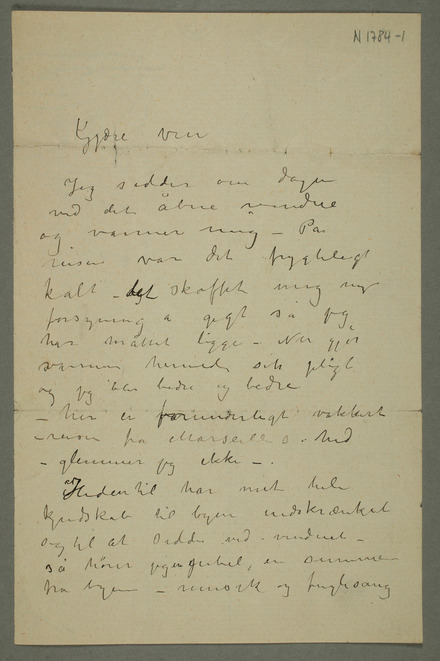 N 1784-1
Kjære ven
Jeg sidder om dagen
ved det åbne vindue
og varmer mig – Paa
reisen var det frygteligt
kalt – det skaffet mig ny
forsyning a gigt så jeg
har måttet ligge – Nu gjør
varmen hernede sin pligt
og jeg blir bedre og bedre
– her er forunderligt vakkert
– reisen fra Marseilles. hid
– glemmer jeg ikke –.
Hidentil har mit hele
kjendskab til byen indskrænket
sig til at sidde ved vinduet –
så hører jeg en summen
fra byen – musik og fuglesang